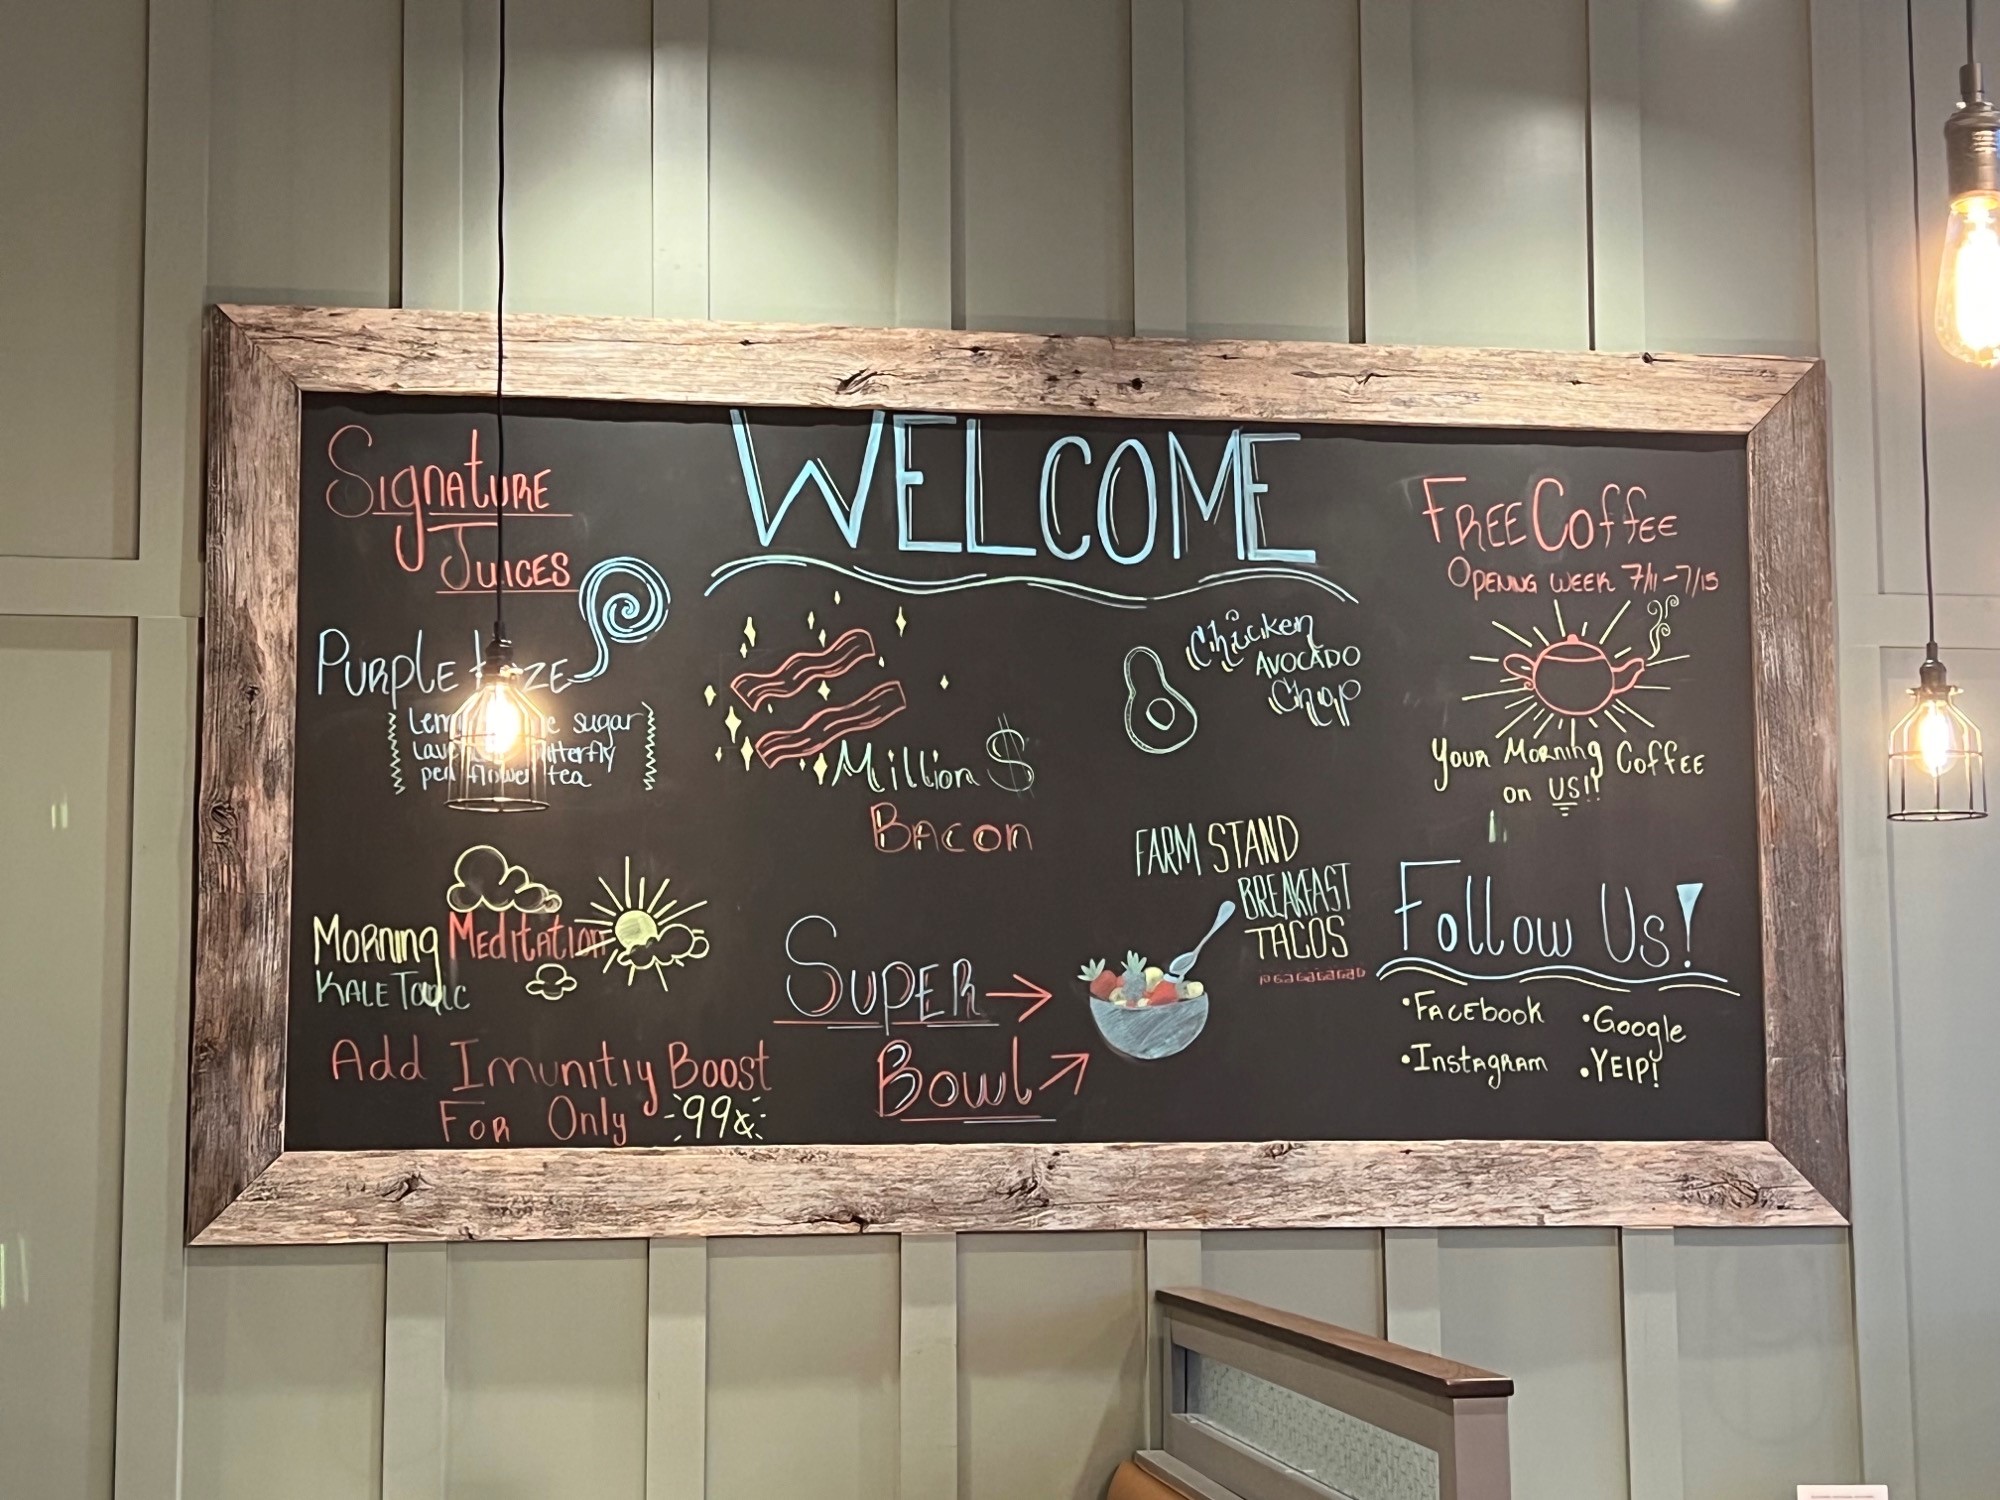 WELCOME
Signature
Juices
Purple
sugar
flower tea
Morning Meditation
Kale Tonic
Add Imunitiy Boost
For Only 99¢
Million $
Bacon
Super
Bowl
Chicken
Avocado
Chop
FARM STAND
BREAKFAST
TACOS
Free Coffee
Opening week 7/11-7/15
Your Morning Coffee
on US!!
Follow Us!
•Facebook
•Instagram
•Google
•YElP!